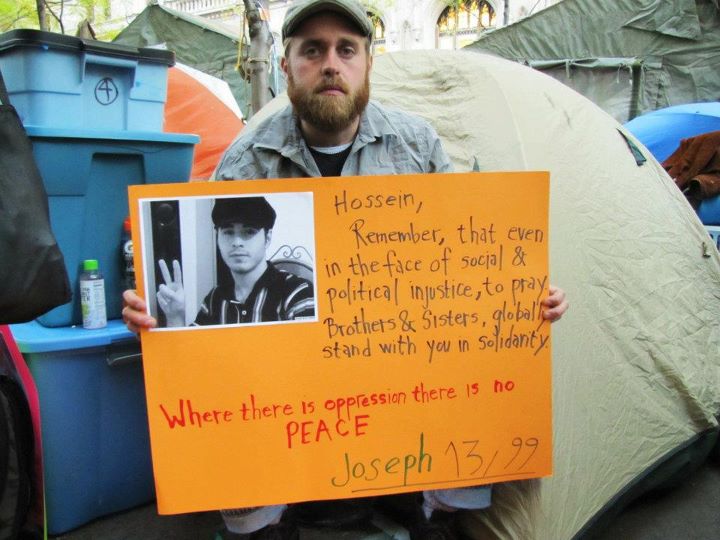 4
Hossein,
Remember, that even
in the face of social &
political injustice, to pray
Brothers & Sisters, globally
stand with you in solidarity
Where there is oppression there is no
PEACE
Joseph 13/99